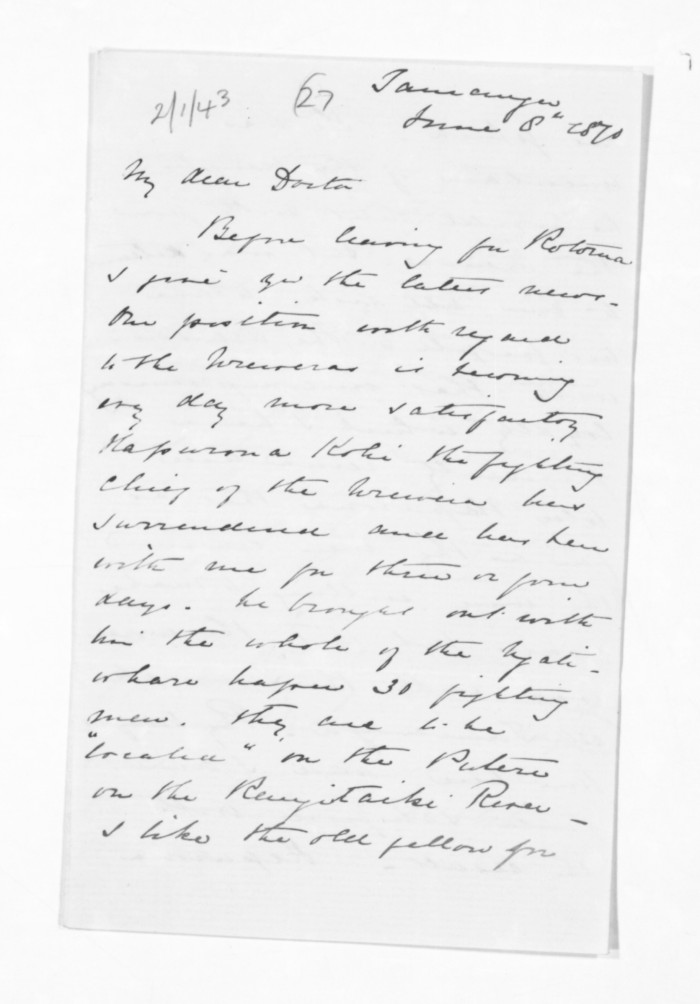 2/1/43 (27 Tauranga
June 8th 1870
My dear Doctor
Before leaving for Rotorua
I give you the latest news -
Our position with regard
to the Urewera is becoming
every day more satisfactory
Hapurona Kohi the fighting
chief of the Urewera has
surrendered and has been
with me for three or four
days. He brought out with
him the whole of the Ngati-
whare hapu 30 fighting
men. They are to be
"located" on the Putere
on the Rangitaiki River -
I like the old fellow for